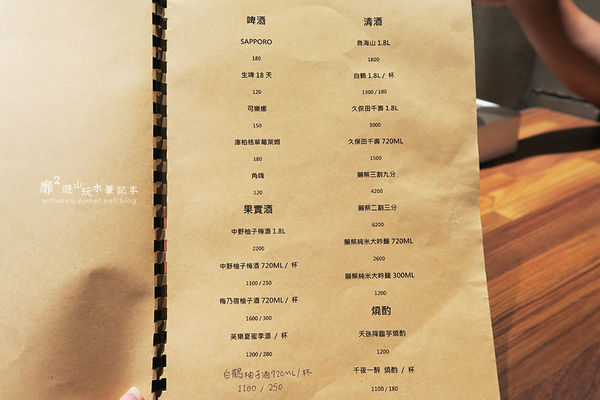 啤酒
SAPPORO
180
生啤 18 天
120
可樂娜
150
庫柏格草莓萊姆
180
角嗨
120
果實酒
中野柚子梅酒 1.8L
2200
中野柚子梅酒 720ML / 杯
1100 / 250
梅乃宿柚子酒 720ML / 杯
1600 / 300
芙樂夏蜜李酒 / 杯
1200 / 280
白鶴柚子酒720ML/杯
1100 / 250
清酒
鳥海山 1.8L
1800
白鶴 1.8L / 杯
1300 / 180
久保田千壽 1.8L
3000
久保田千壽 720ML
1500
獺祭三割九分
4200
獺祭二割三分
6200
獺祭純米大吟釀 720ML
2600
獺祭純米大吟釀 300ML
1200
燒酌
天孫降臨芋燒酌
1200
千夜一醉 燒酌 / 杯
1100 / 180
靡2遊山玩水筆記本
estherslu.pixnet.net/blog